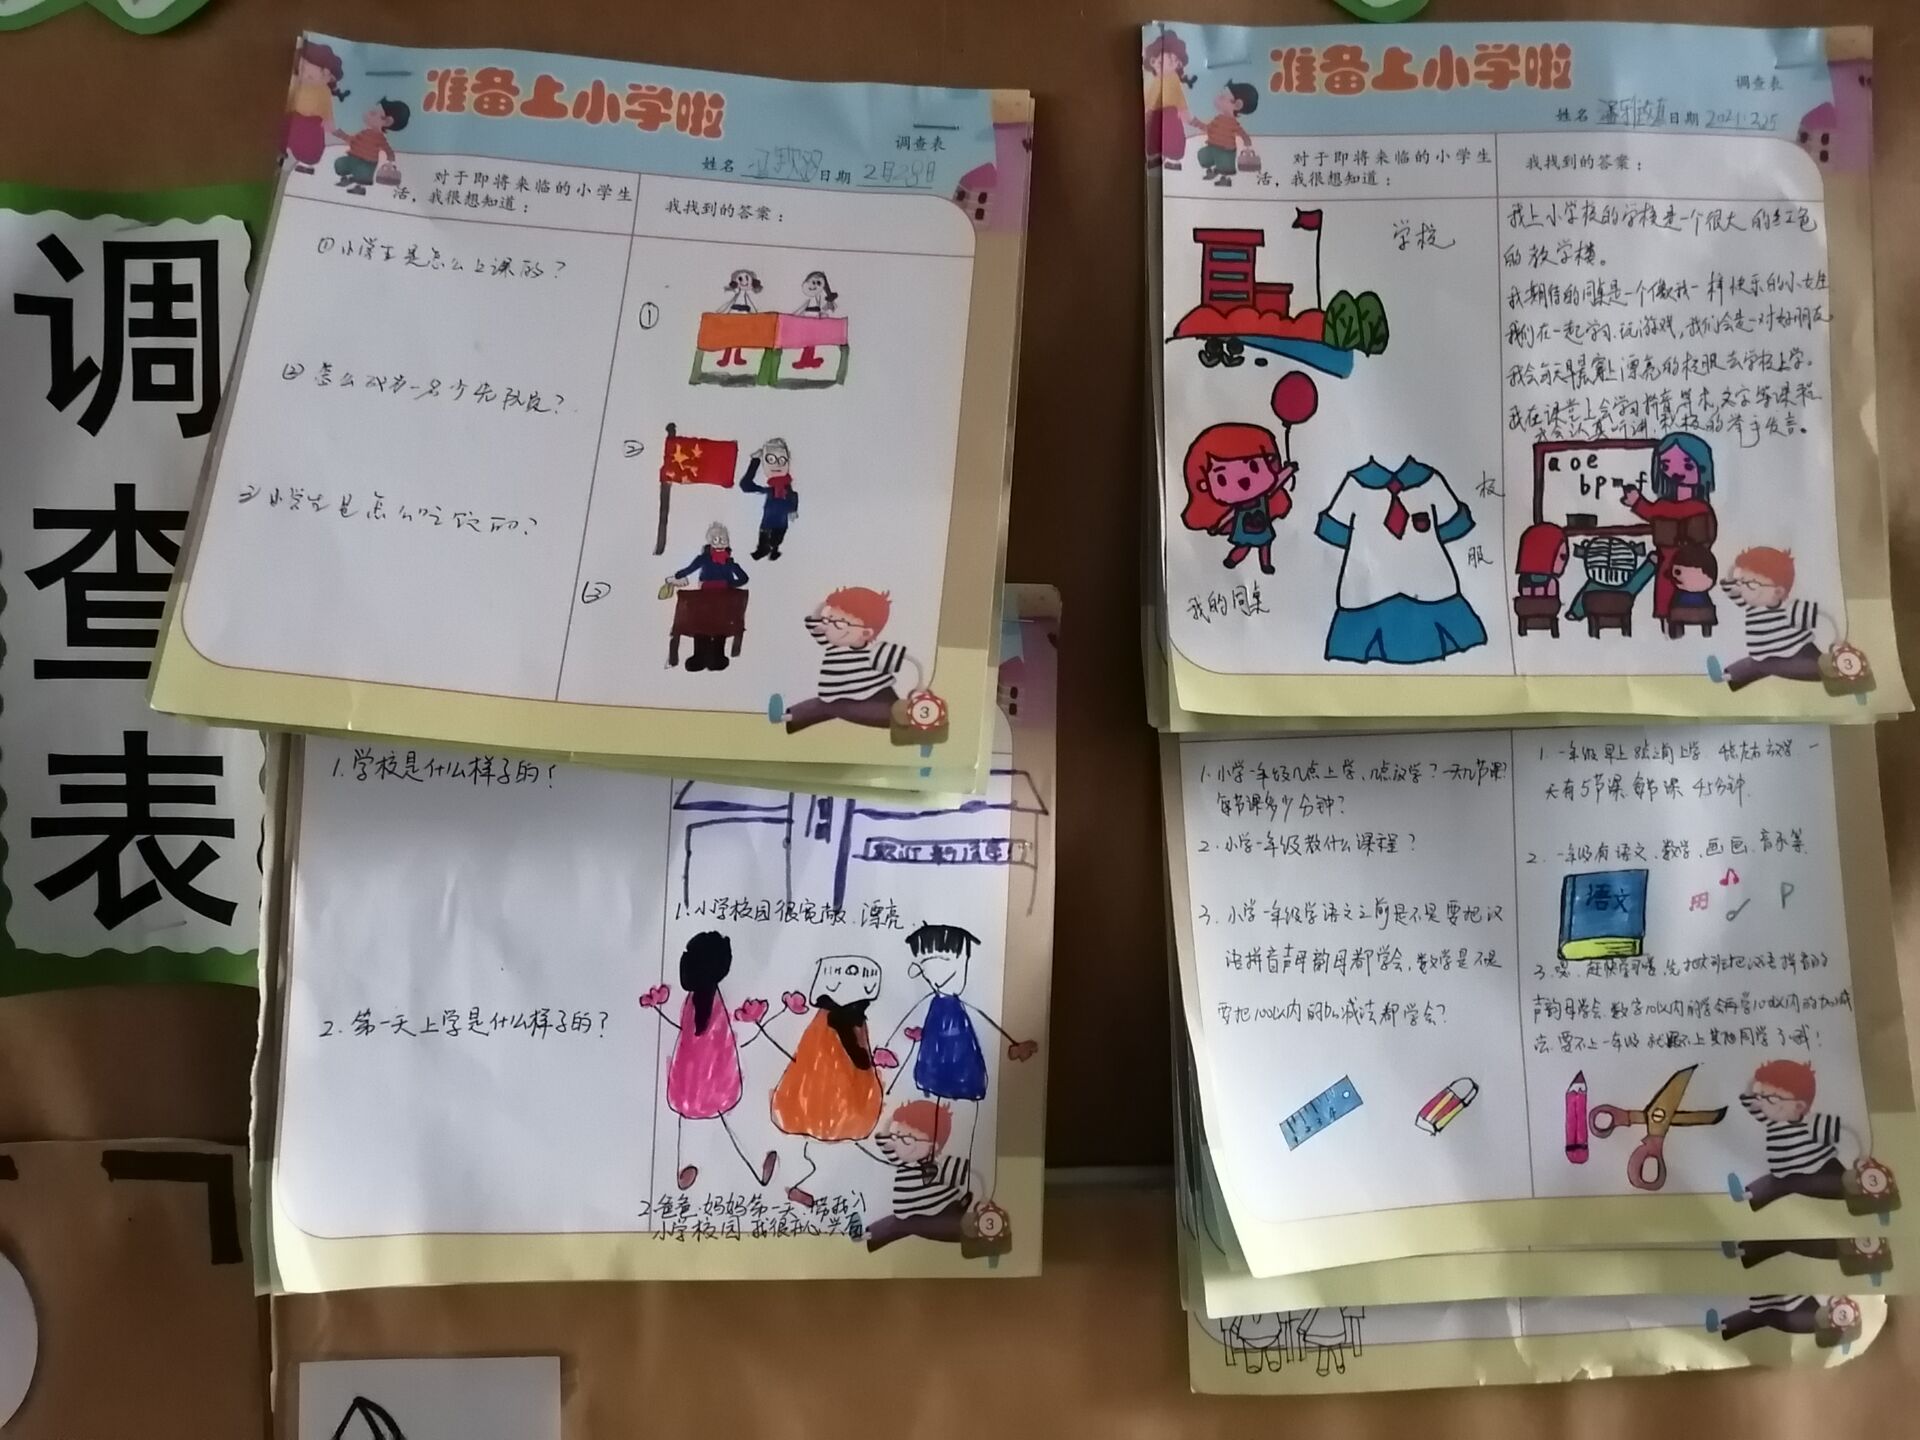 调
查
表
准备上小学啦
调查表
姓名
日期 2月28日
对于即将来临的小学生
活，我很想知道：
我找到的答案：
①小学生是怎么上课的？
②怎么成为一名少先队员？
③小学生是怎么吃饭的？
①
②
③
3
1.学校是什么样子的？
1.小学校园很宽敞、漂亮.
2.第一天上学是什么样子的？
2.爸爸、妈妈第一天带我
小学校园,我很开心、兴奋
3
准备上小学啦
调查表
姓名
日期 2021.2.25
对于即将来临的小学生
活，我很想知道：
我找到的答案：
学校
我的同桌
校
服
我上小学校的学校是一个很大的红色
的教学楼。
我期待的同桌是一个像我一样快乐的小女生
我们在一起学习、玩游戏，我们会是一对好朋友
我会每天早晨穿上漂亮的校服去学校上学。
我在课堂上会学习拼音、算术、文字等课程
我会认真听讲，积极的举手发言。
a o e
b p m f
3
1.小学一年级几点上学、几点放学？一天几节课？
每节课多少分钟？
2.小学一年级教什么课程？
3.小学一年级学语文之前是不是要把汉
语拼音声母韵母都学会，数学是不是
要把100以内的加减法都学会？
1.一年级早上8点之前上学 4点左右放学 一
天有5节课.每节课 45分钟.
2.一年级有语文、数学、画画、音乐等.
语文
声韵母学会.数字10以内的学会再学100以内的加减
法.要不上一年级就跟不上其他同学了哦！
3
3
3